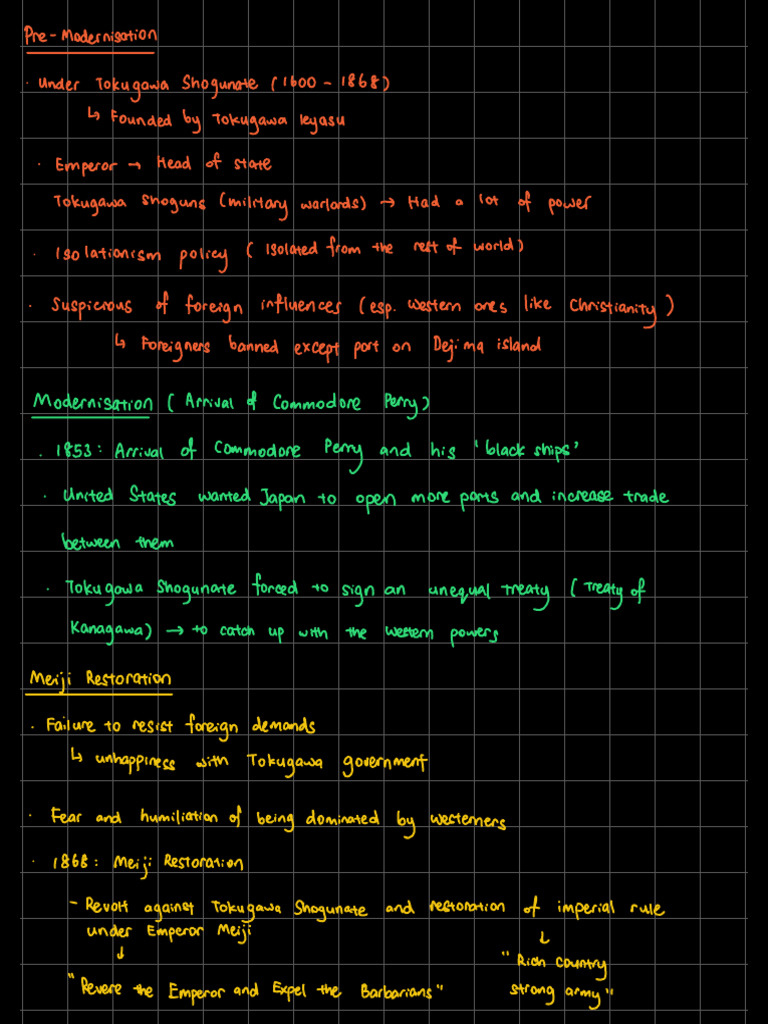 Pre-Modernisation
· Under Tokugawa Shogunate (1600 - 1868)
↳ Founded by Tokugawa Ieyasu
· Emperor → Head of state
Tokugawa Shoguns (military warlords) → Had a lot of power
· Isolationism policy ( Isolated from the rest of world)
· Suspicious of foreign influences (esp. western ones like Christianity)
↳ Foreigners banned except port on Dejima island
Modernisation ( Arrival of Commodore Perry)
· 1853: Arrival of Commodore Perry and his 'black ships'
· United States wanted Japan to open more ports and increase trade
between them
· Tokugawa Shogunate forced to sign an unequal treaty (Treaty of
Kanagawa) → to catch up with the western powers
Meiji Restoration
· Failure to resist foreign demands
↳ unhappiness with Tokugawa government
· Fear and humiliation of being dominated by westerners
· 1868: Meiji Restoration
- Revolt against Tokugawa Shogunate and restoration of imperial rule
under Emperor Meiji
↓ ↓
"Revere the Emperor and Expel the Barbarians"
"Rich country
strong army"